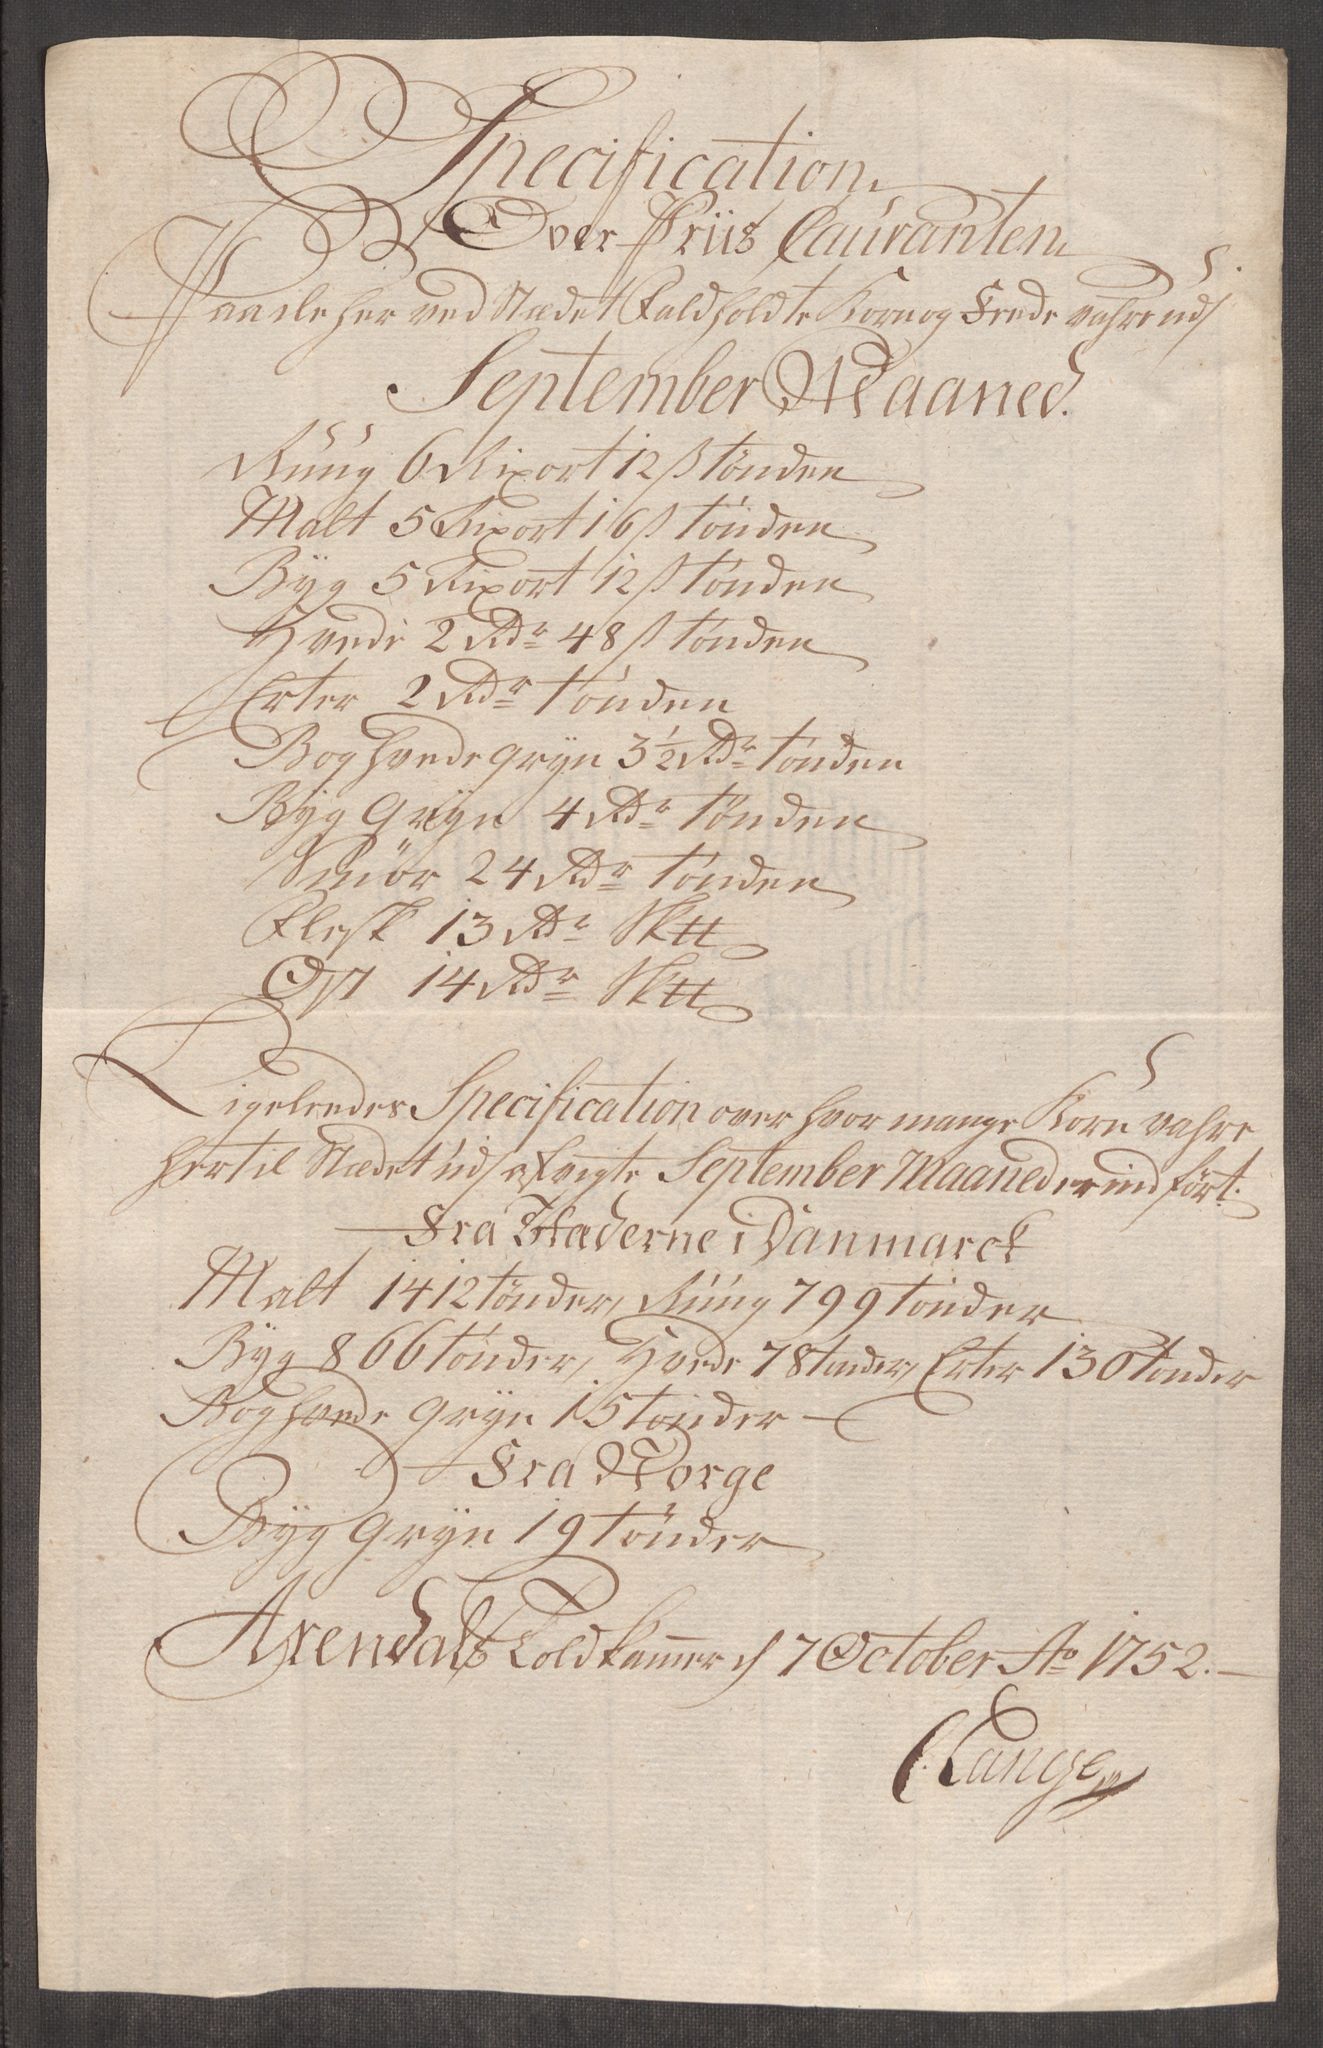 Specification
Over Priis Cauranten
Paa de her ved Stædet faldholdte Korn og Fede vahre udj
September Maaned.
Rúúg 6 Rixort 12 ß tönden
Malt 5 Rixort 16 ß tönden
Byg 5 Rixort 12 ß tönden
Hvede 2 Rdr 48 ß tönden
Erter 2 Rdr tönden
Boghvede gryn 3 1/2 Rdr tönden
Byg Gryn 4 Rdr tönden
Smör 24 Rdr tönden
Flesk 13 Rdr Sk℔
Ost 14 Rdr Sk℔
Ligeleedes Specification over hvor mange Korn vahre
hertil Stædet udj afvigte September Maaned er ind fört.
Fra Stæderne i Danmarck
Malt 1412 tönder, Rúúg 799 tönder
Byg 866 tönder, Hvede 78 tönder, Erter 130 tönder
Boghvede Gryn 15 tönder
Fra Norge
Byg Gryn 19 tönder
Arendals Toldkammer d 7 October Ao 1752.
C Lange